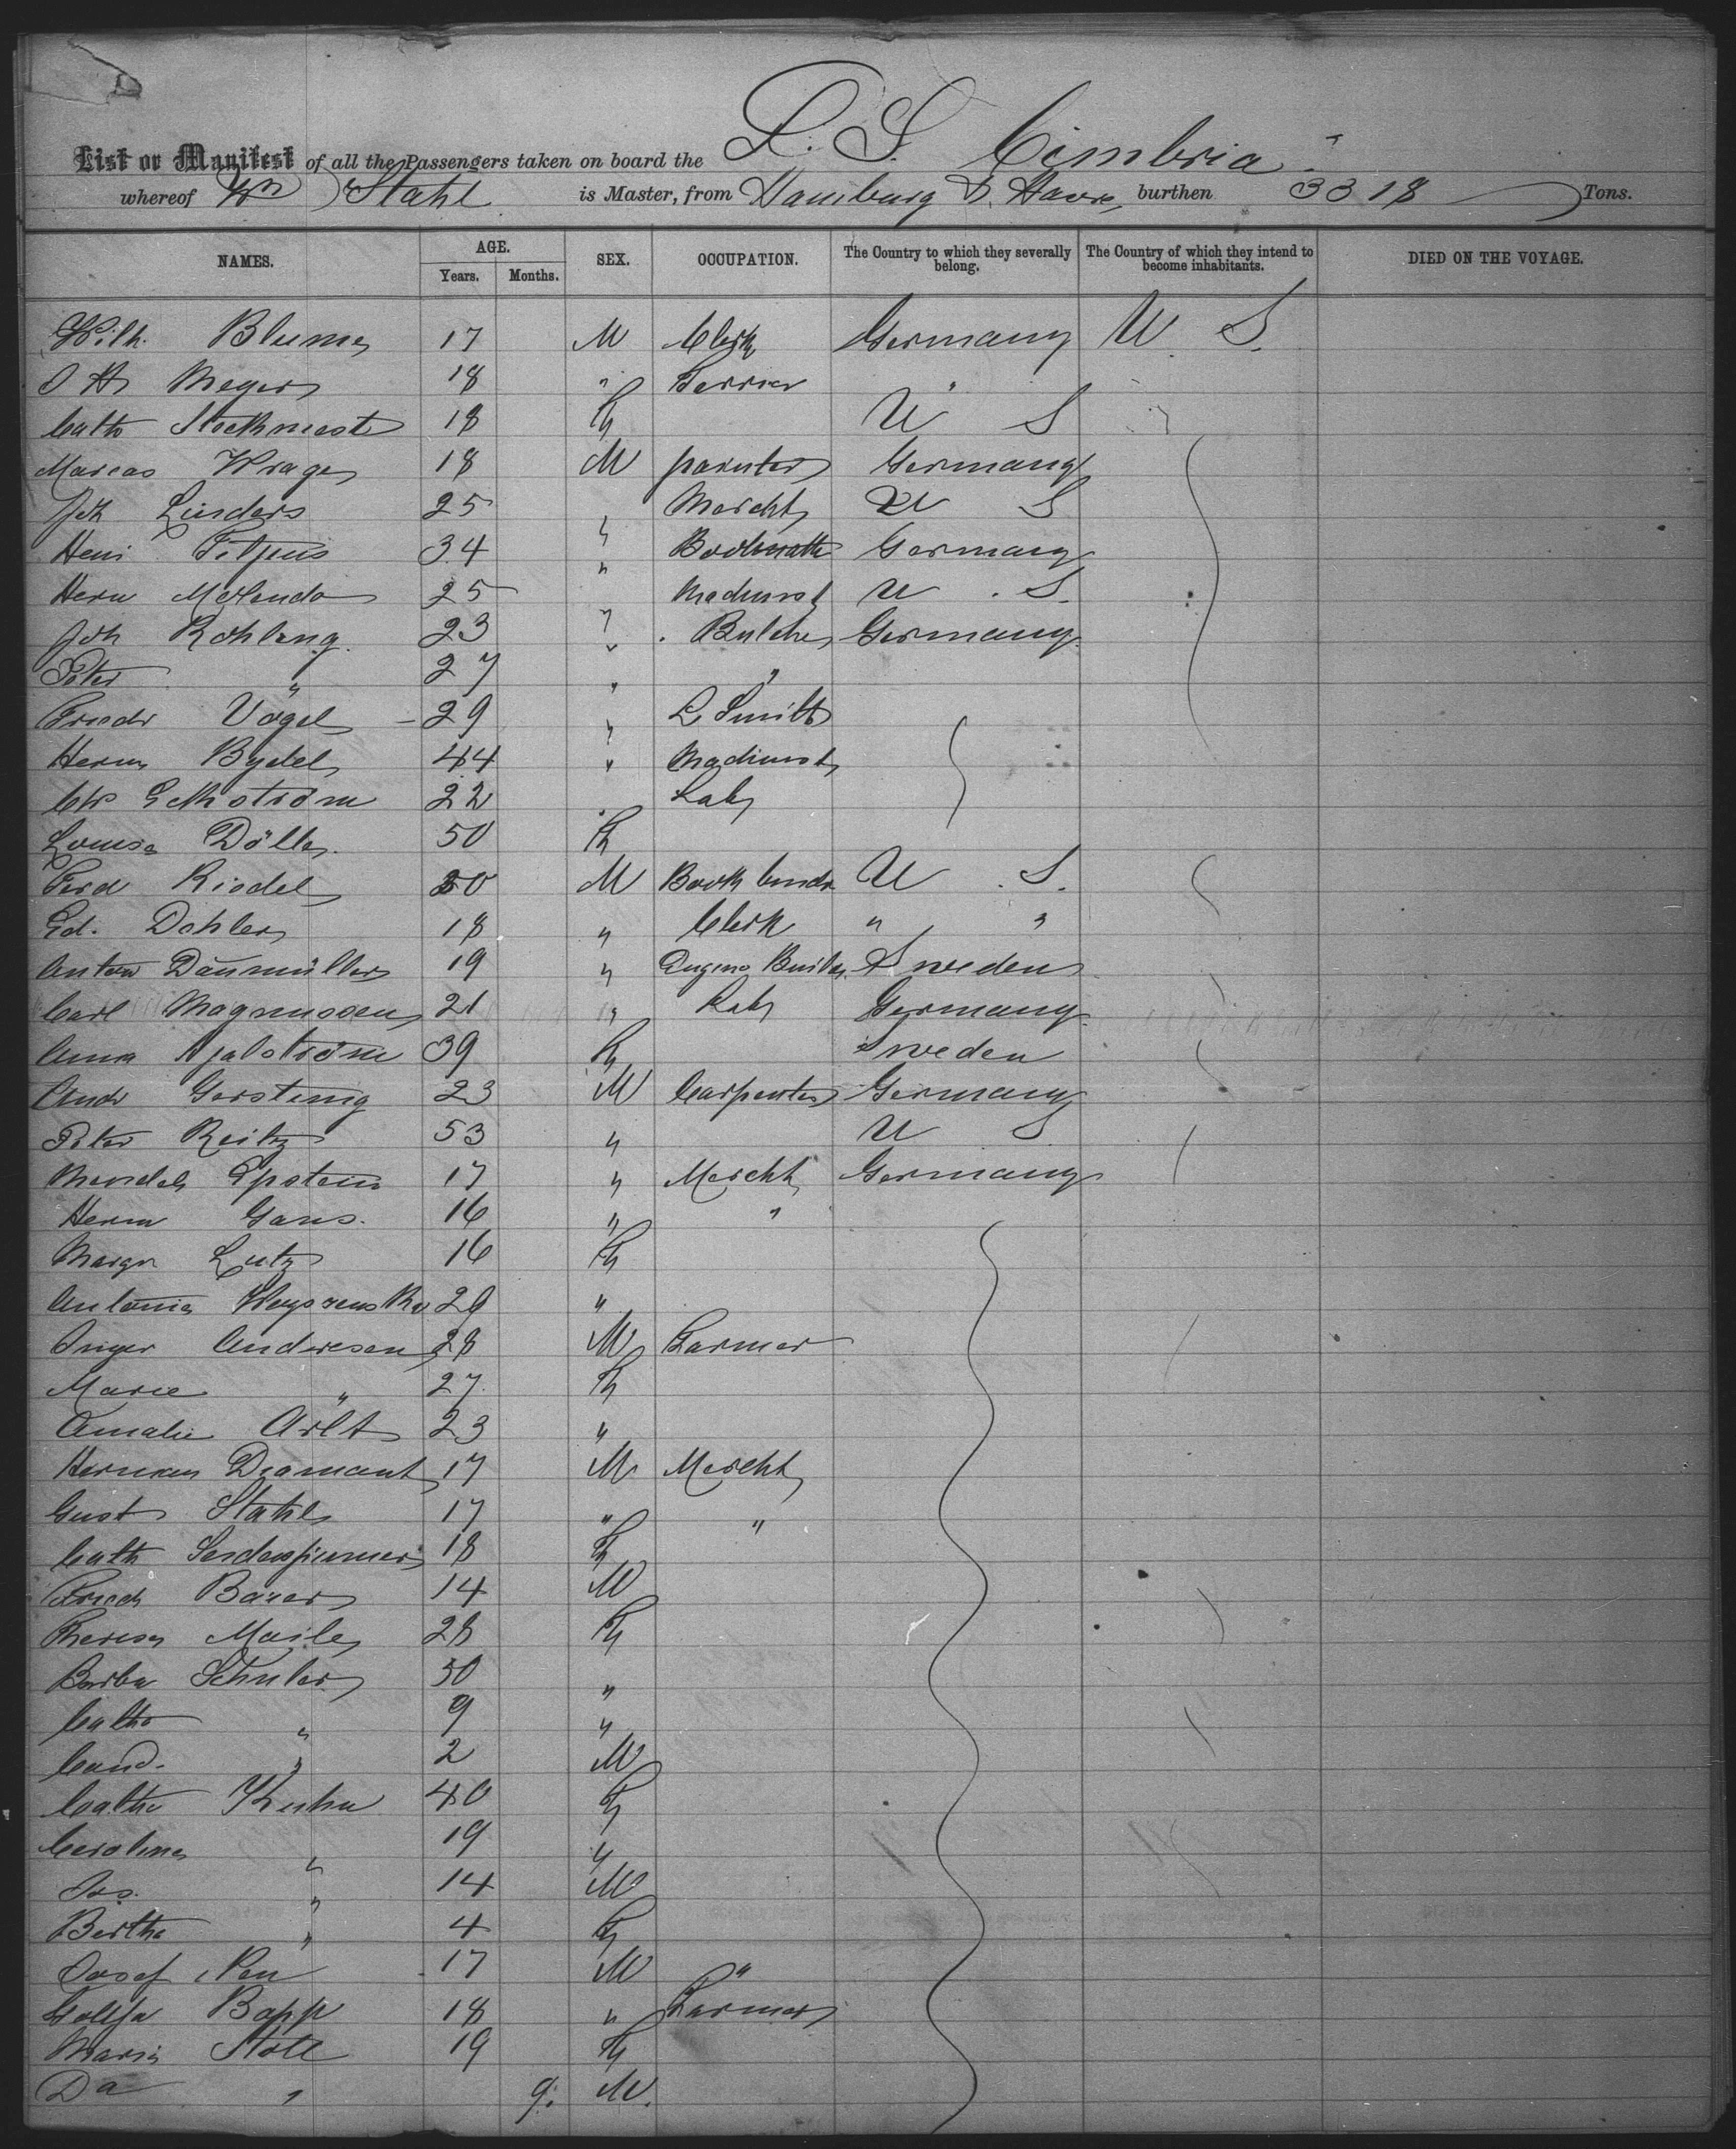 S. S. Cimbria
List or Manifest of all the Passengers taken on board the
whereof Wm Stahl is Master, from Hamburg & Havre, burthen 3318 Tons.
NAMES. AGE. Years. Months. SEX. OCCUPATION. The Country to which they severally belong. The Country of which they intend to become inhabitants. DIED ON THE VOYAGE.
Wilh. Blume 17 M Clerk Germany U S.
Meyer 18 "
Cath 18 F U S "
Marcus Wrage 18 M painter Germany
Joh Lueders 25 " Mercht U S
34 " Germany
Herm 25 " Machinist U. S.
Joh Rohling 23 " Butcher Germany
Peter " 27 " "
Friedr Vogel 29 "
Herm 44 " Machinist
22 " Lab
Louise Döll 50 F
Ferd Riedel M Book bindr U. S.
Ed. Dohler 18 " Clerk " "
Anton Daumüller 19 " Engine Sweden
Carl Magnussen 21 " Lab Germany
Anna 39 F Sweden
Andr Gersting 23 M Carpenter Germany
Peter Reitz 53 " U S
Mendel Epstein 17 " Mercht Germany
Herm Gans. 16 " "
Margr Lutz 16 F
Antonia "
Inger Andresen 28 M Farmer
Marie " 27 F
Amalie Arlt 23 "
Herman Diamant 17 M Mercht
Gust Stahl 17 " "
Cath 18 F
Friedr Bauer 14 M
Theresa 28 F
Barba Schuler "
Cath " 9 "
" 2 M
Cath Kuhn 40 F
Carolina " 19 "
Jos. " 14 M
Bertha " 4 F
Josef 17 M "
Bopp 18 " Farmer
Maria Stoll 19 F
Da " 9. M.